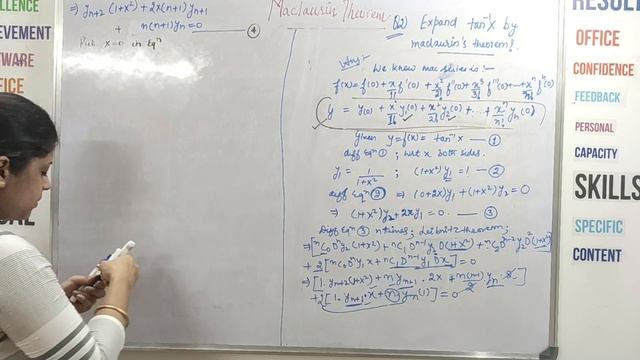 ELLENCE
IEVEMENT
TWARE
FICE
⇒ y_{n+2} (1+x²) + 2x(n+1) y_{n+1}
+ n(n+1) y_n = 0 — ④
Put x=0 in Eqⁿ
Maclaurin Theorem
Q2) Expand tan⁻¹x by
maclaurin's theorem!
Ans:
We know mac series is:-
f(x) = f(0) + x/1! f'(0) + x²/2! f''(0) + x³/3! f'''(0) + ... + xⁿ/n! fⁿ(0)
y = y(0) + x/1! y₁(0) + x²/2! y₂(0) + ... + xⁿ/n! y_n(0)
Given y = f(x) = tan⁻¹x — ①
diff Eqⁿ ① ; wrt x both sides.
y₁ = 1/(1+x²) ; (1+x²) y₁ = 1 — ②
diff Eqⁿ ② ⇒ (0+2x) y₁ + (1+x²) y₂ = 0
⇒ (1+x²) y₂ + 2x y₁ = 0 — ③
Diff Eqⁿ ③ n times; Leibnitz theorem;
⇒ [ⁿC₀ Dⁿ y₂ (1+x²) + ⁿC₁ Dⁿ⁻¹ y₂ D(1+x²) + ⁿC₂ Dⁿ⁻² y₂ D²(1+x²)]
+ 2[ⁿC₀ Dⁿ y₁ x + ⁿC₁ Dⁿ⁻¹ y₁ Dx] = 0
⇒ [1. y_{n+2} (1+x²) + n y_{n+1} . 2x + n(n-1)/2 y_n . 2]
+ 2[1. y_{n+1} . x + n y_n (1)] = 0
RESULT
OFFICE
CONFIDENCE
FEEDBACK
PERSONAL
CAPACITY
SKILLS
SPECIFIC
CONTENT